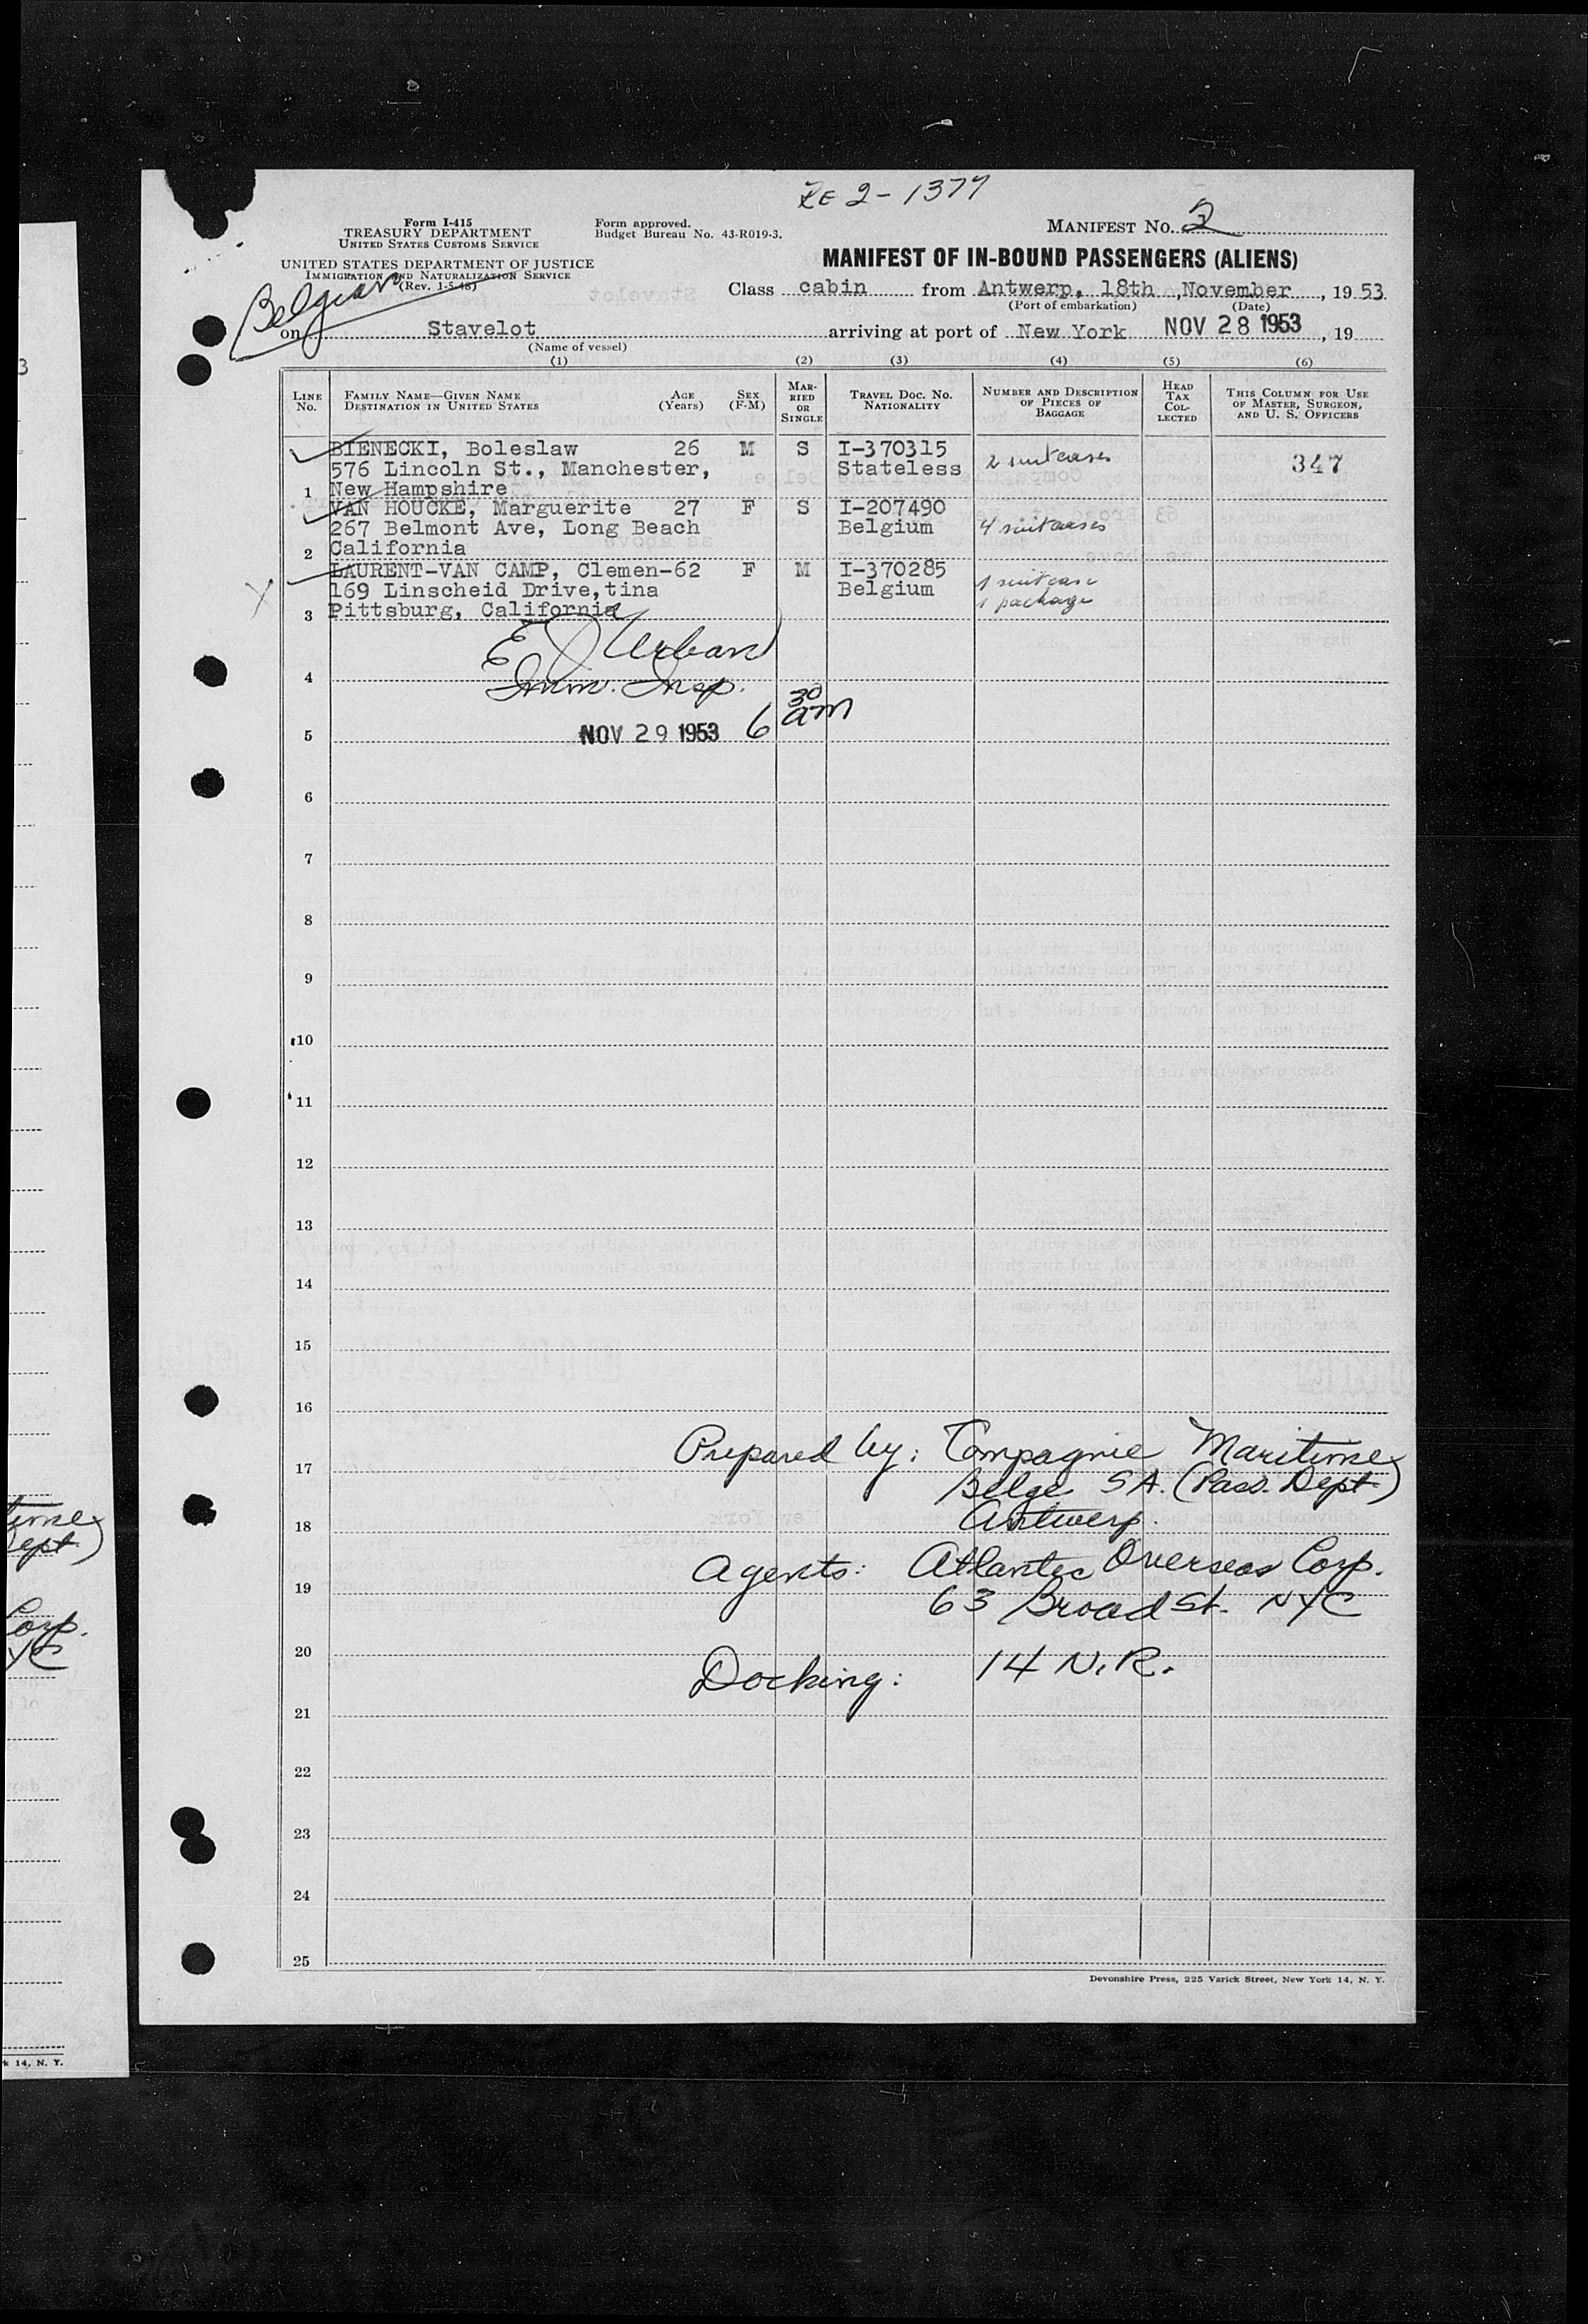 Re 2-1377
Form I-415
TREASURY DEPARTMENT
UNITED STATES CUSTOMS SERVICE
UNITED STATES DEPARTMENT OF JUSTICE
IMMIGRATION AND NATURALIZATION SERVICE
(Rev. 1-5-48)
Form approved.
Budget Bureau No. 43-R019-3.
MANIFEST No. 2
MANIFEST OF IN-BOUND PASSENGERS (ALIENS)
Class cabin from Antwerp, 18th November, 1953
(Port of embarkation) (Date)
Belgian
on Stavelot arriving at port of New York NOV 28 1953, 19
(Name of vessel)
(1) (2) (3) (4) (5) (6)
LINE No. FAMILY NAME—GIVEN NAME DESTINATION IN UNITED STATES AGE (Years) SEX (F-M) MARRIED OR SINGLE TRAVEL DOC. No. NATIONALITY NUMBER AND DESCRIPTION OF PIECES OF BAGGAGE HEAD TAX COLLECTED THIS COLUMN FOR USE OF MASTER, SURGEON, AND U. S. OFFICERS
BIENECKI, Boleslaw 26 M S I-370315 2 suitcases 347
576 Lincoln St., Manchester, Stateless
1 New Hampshire
VAN HOUCKE, Marguerite 27 F S I-207490
267 Belmont Ave, Long Beach Belgium 4 suitcases
2 California
LAURENT-VAN CAMP, Clemen-62 F M I-370285 1 suitcase
X 169 Linscheid Drive,tina Belgium 1 package
3 Pittsburg, California
E J Urban
4 Imm. Insp.
5 NOV 29 1953 6 30 am
6
7
8
9
10
11
12
13
14
15
16
17 Prepared by: Compagnie Maritime
Belge SA. (Pass. Dept)
18 Antwerp.
Agents: Atlantic Overseas Corp.
19 63 Broad St. NYC
20
Docking: 14 N.R.
21
22
23
24
25
Devonshire Press, 225 Varick Street, New York 14, N. Y.
3
time
Dept)
Corp.
YC
k 14, N. Y.